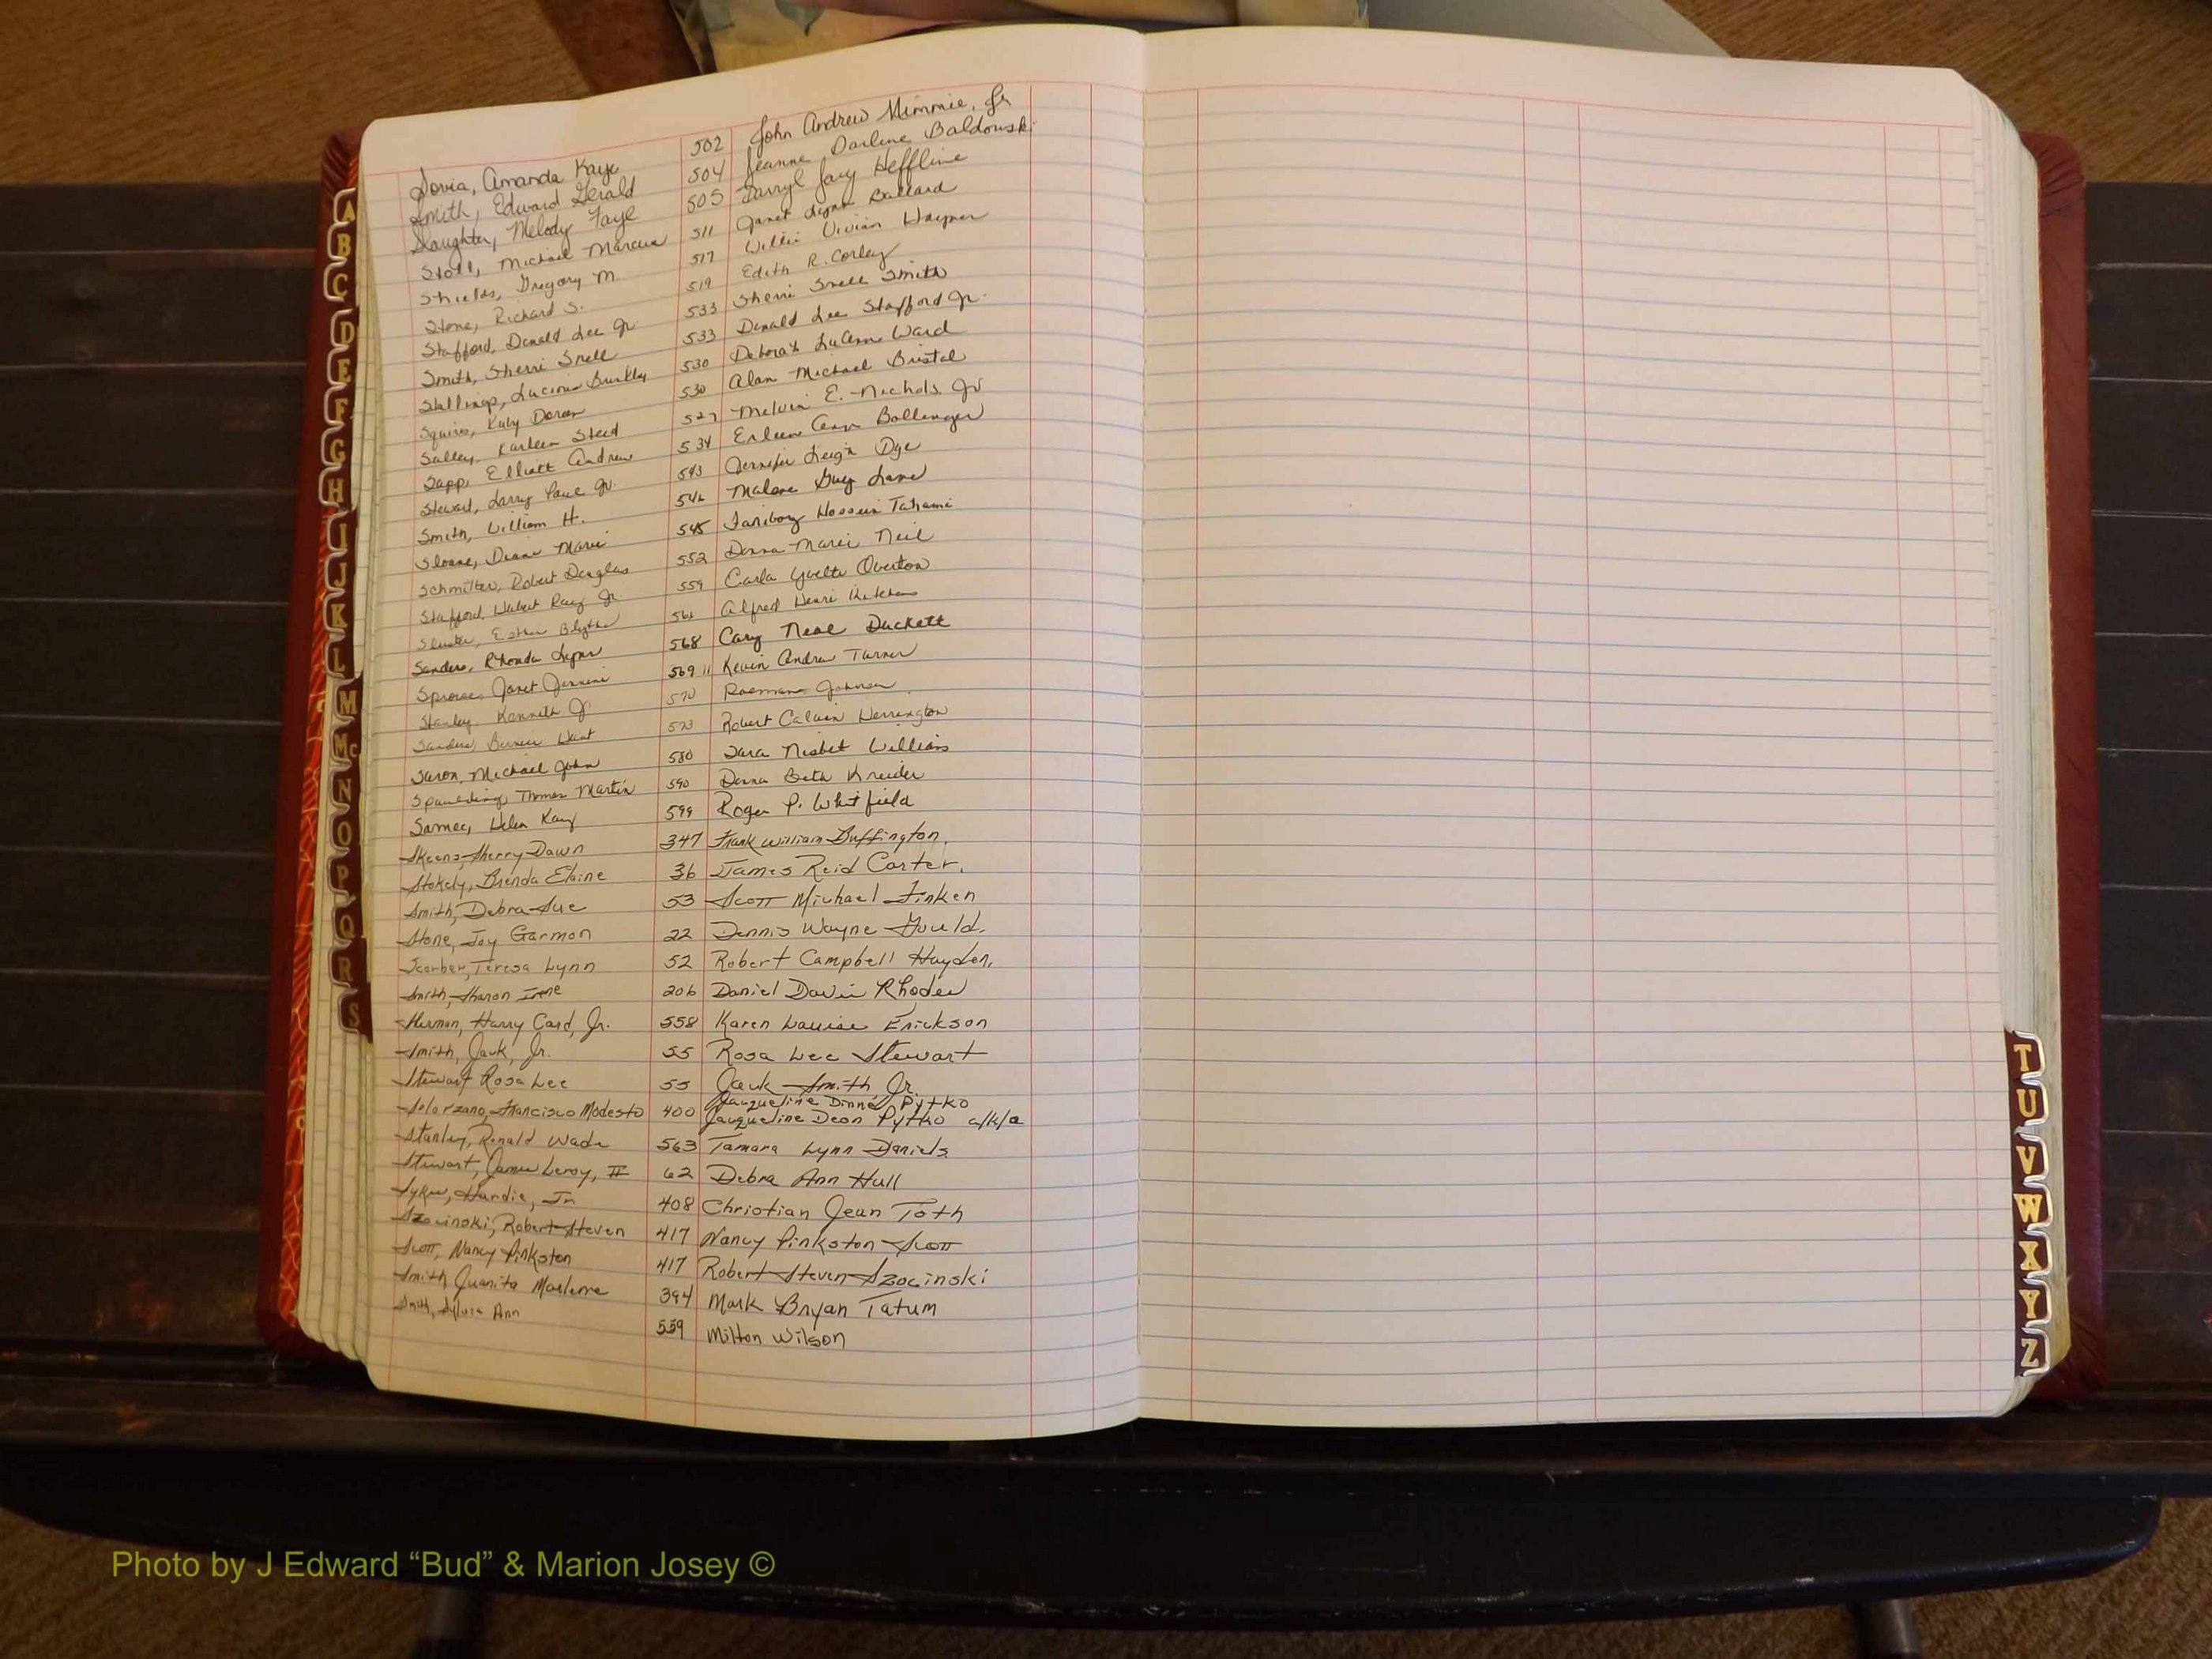 Soria, Amanda Kaye 502 John Andrew Mimmie, Jr
Smith, Edward Gerald 504 Jeanne Darlene Baldowski
Slaughter, Melody Faye 505 Darryl Gary Heffline
Stoll, Michael Marcus 511 Janet Lynn Ballard
Shields, Gregory M. 517 Willie Vivian Wayner
Stone, Richard S. 519 Edith R. Corley
Stafford, Donald Lee Jr. 533 Sherri Snell Smith
Smith, Sherri Snell 533 Donald Lee Stafford Jr.
Stallings, Lucinia 530 Deborah LuAnn Ward
Squires, Ruby Doran 530 Alan Michael Bristol
Salley, Karleen Steed 527 Melvin E. Nichols Jr
Sapp, Elliott Andrew 534 Erleen Ann Bollenger
Steward, Larry Paul Jr. 543 Jennifer Leigh Dye
Smith, William H. 546 Malone Guy Lane
Sloane, Diane Marie 545 Fariborz Hossein Tahami
Schmitter, Robert Douglas 552 Donna Marie Neil
Stafford, Walter Ray Jr. 559 Carla Yvette Overton
Esther Blythe 561 Alfred Henri
Sanders, Rhonda Lynn 568 Cary Neal Duckett
Sprouse, Janet Jennine 569 11 Kevin Andrew Turner
Stanley, Kenneth J. 570 Johnson
Sanders, Bernice 573 Robert Calvin Herrington
Saron, Michael John 580 Sara Nisbet Williams
Spaulding, Thomas Martin 590 Donna Beth Kreider
Samec, Helen Kay 599 Roger P. Whitfield
Skeens, Sherry Dawn 347 Frank William Buffington,
Stokely, Brenda Elaine 36 James Reid Carter,
Smith, Debra Sue 53 Scott Michael Finken
Stone, Joy Garmon 22 Dennis Wayne Gould,
Scarber, Teresa Lynn 52 Robert Campbell Hayden,
Smith, Sharon Irene 206 Daniel David Rhoden
Harry Card, Jr. 558 Karen Louise Erickson
Smith, Jack, Jr. 55 Rosa Lee Stewart
Stewart Rosa Lee 55 Jack Smith Jr.
Jacqueline Dinné Pytko
Solorzano, Francisco Modesto 400 Jacqueline Dean Pytko a/k/a
Stanley, Ronald Wade 563 Tamara Lynn Daniels
Stewart, James Leroy, II 62 Debra Ann Hull
Sykes, Handie, Jr 408 Christian Jean Toth
Szocinski, Robert Steven 417 Nancy Pinkston Scott
Scott, Nancy Pinkston 417 Robert Steven Szocinski
Smith Juanita Maelene 394 Mark Bryan Tatum
Smith, Sylvia Ann 559 Milton Wilson
A
B
C
D
E
F
G
H
I
J
K
L
M
Mc
N
O
P
Q
R
S
T
U
V
W
X
Y
Z
Photo by J Edward “Bud” & Marion Josey ©